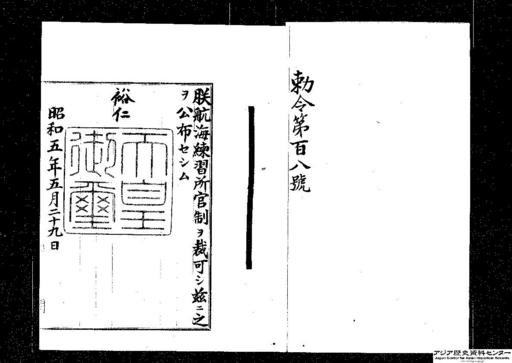 勅令第百八號
朕航海練習所官制ヲ裁可シ茲ニ之
ヲ公布セシム
裕仁
天皇
御璽
昭和五年五月二十九日
アジア歴史資料センター
Japan Center for Asian Historical Records